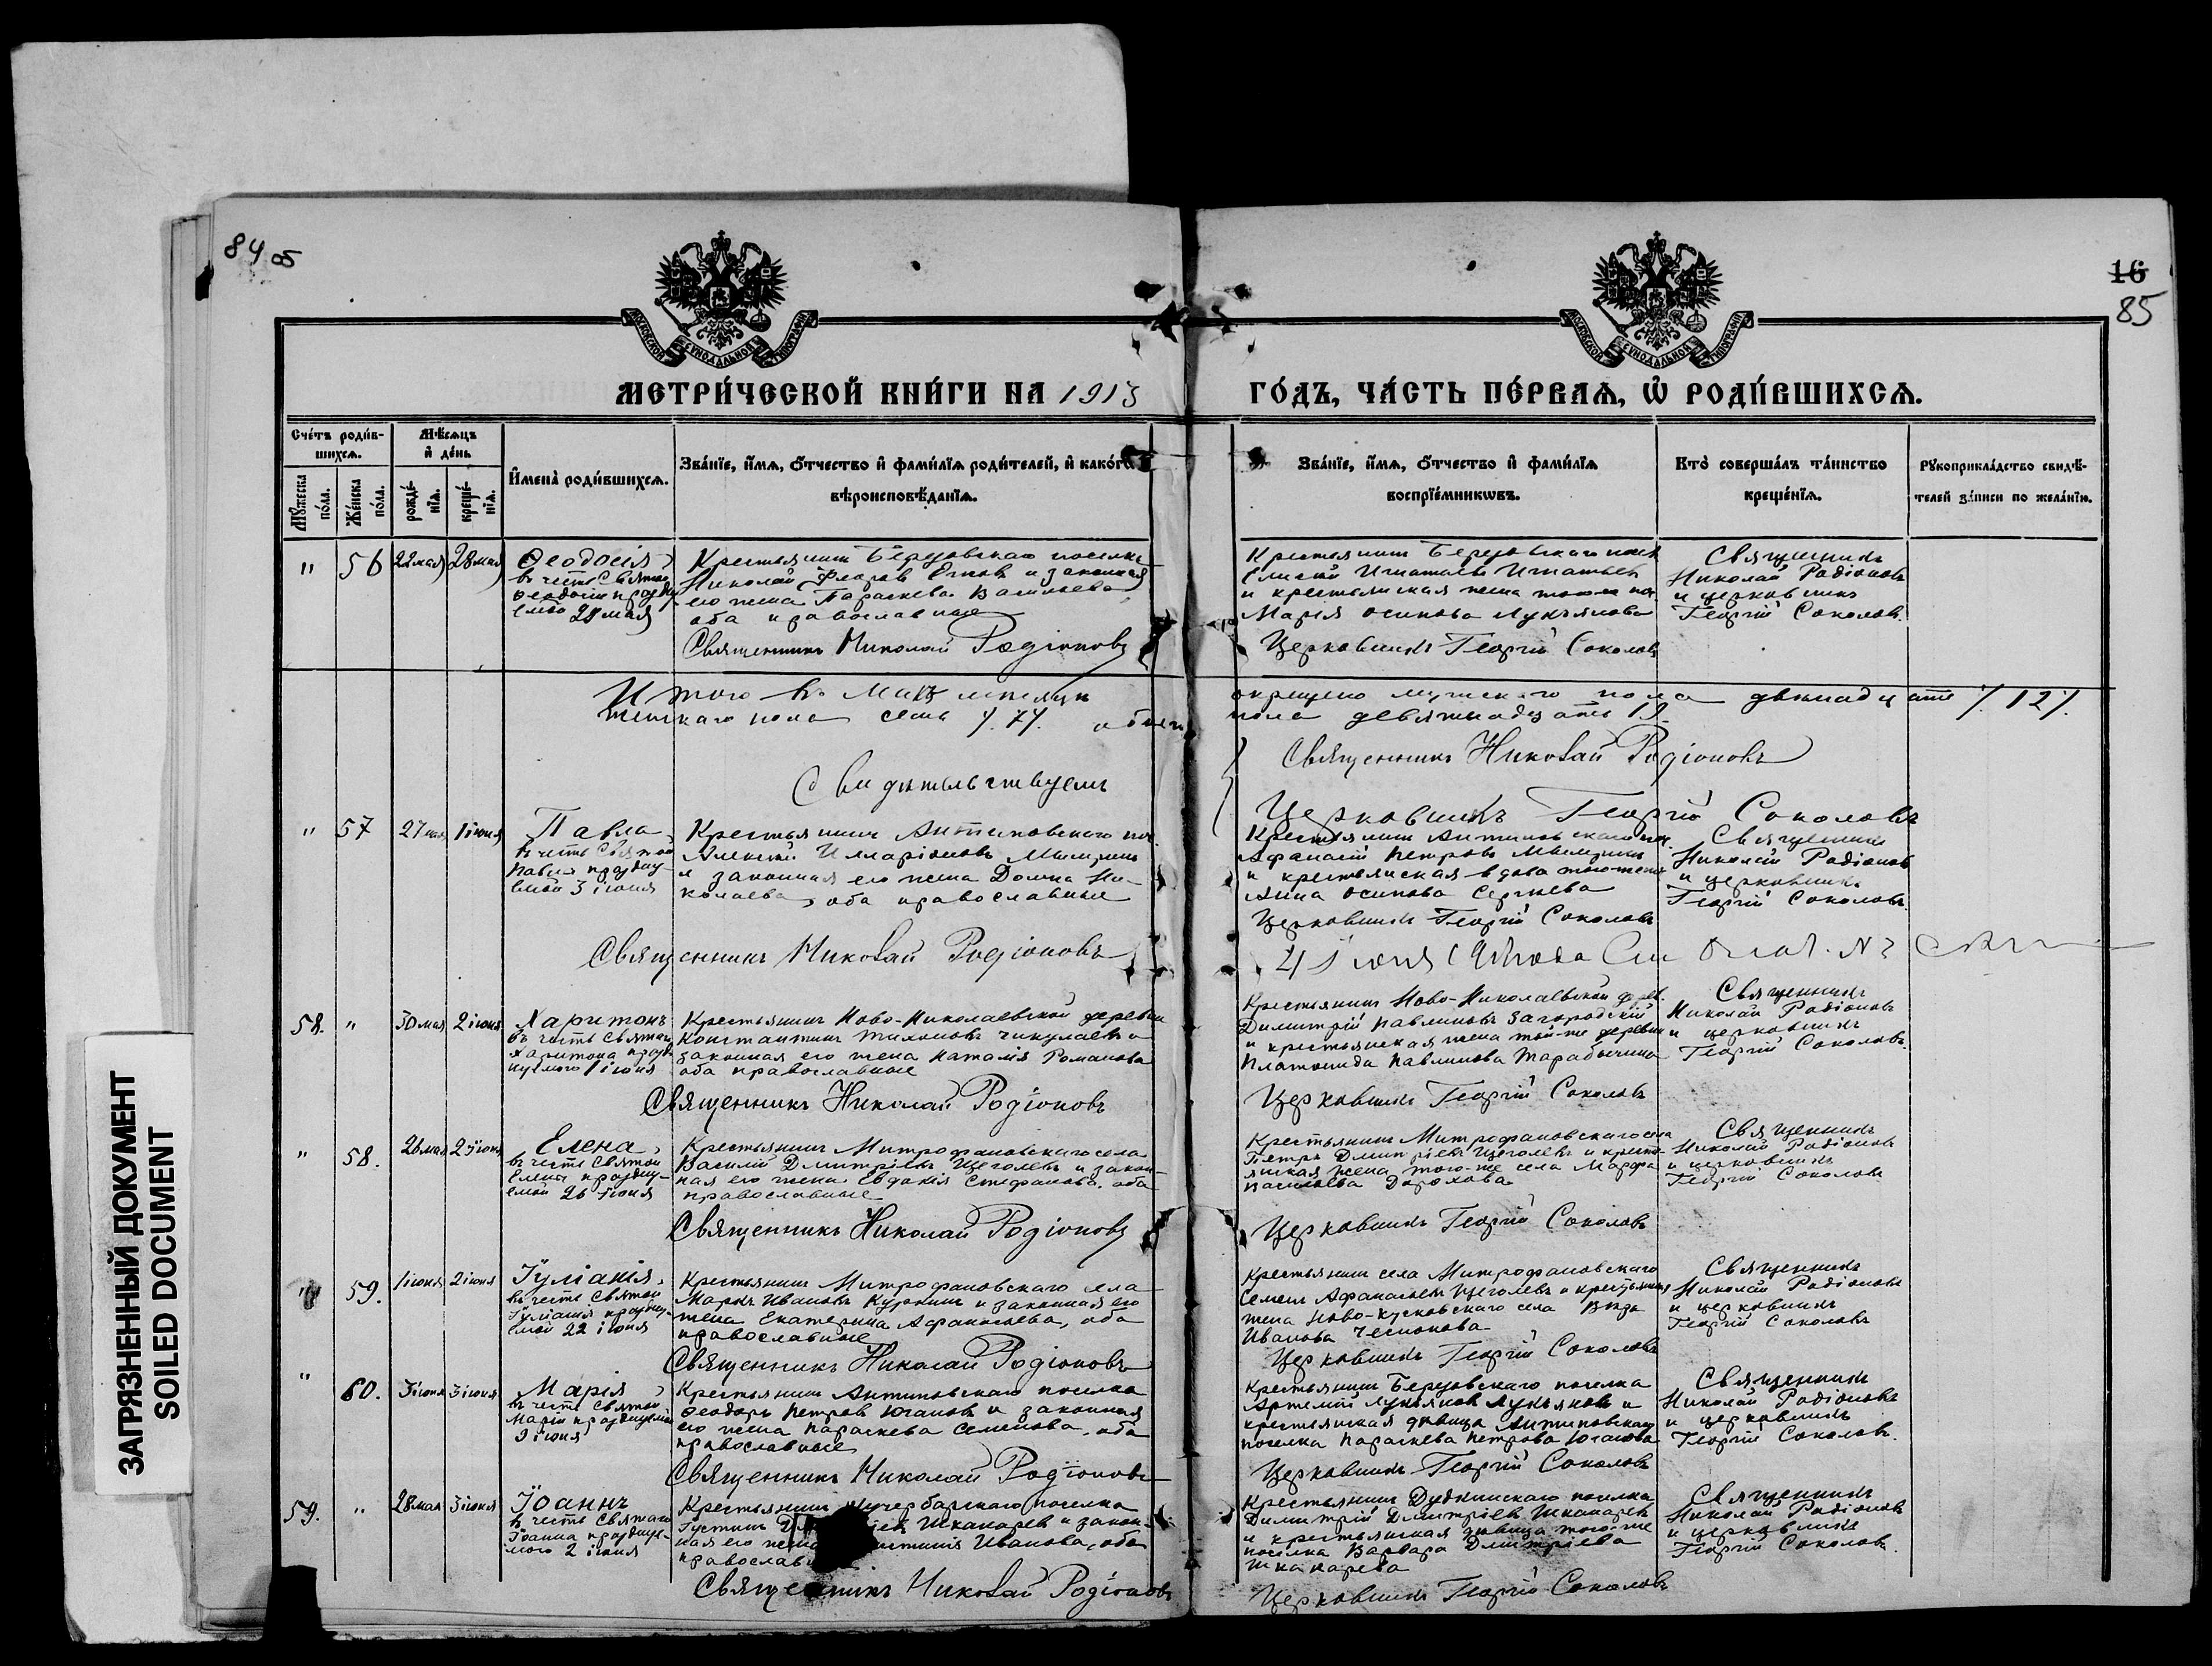 84 об
16
85
МОСКОВСКОЙ СѴНОДАЛЬНОЙ ТИПОГРАФІИ
МОСКОВСКОЙ СѴНОДАЛЬНОЙ ТИПОГРАФІИ
МЕТРИ́ЧЕСКОЙ КНИ́ГИ НА 1913
ГО́ДЪ, ЧА́СТЬ ПЕ́РВАѦ, Ѡ҆ РОДИ́ВШИХСѦ.
Сче́тъ роди́в-
шихсѧ.
Мꙋжеска по́ла.
Же́нска по́ла.
Мѣ́сѧцъ
и҆ де́нь
рожде́-
нїѧ.
креще́-
нїѧ.
И҆мена̀ роди́вшихсѧ.
Зва́нїе, и҆́мѧ, ѻ҆́тчество и҆ фами́лїѧ роди́телей, и҆ како́гѡ
вѣроисповѣ́данїѧ.
Зва́нїе, и҆́мѧ, ѻ҆́тчество и҆ фами́лїѧ
воспрїе́мникѡвъ.
Кто̀ соверша́лъ та́инство
креще́нїѧ.
Рꙋкоприкла́дство свидѣ́-
телей за́писи по жела́нїю.
" 56 22 мая 28 мая
Ѳеодосія
въ честь Святой
Ѳеодосіи праздну
емой 29 мая
Крестьянинъ Березовскаго поселка
Николай Флоровъ и законная
его жена Параскева Васильева
оба православные
Священникъ Николай Родіоновъ
Крестьянинъ Березовскаго посел
Елисей Игнатьевъ Игнатьевъ
и крестьянская жена того же пос.
Марія Осипова Лукьянова
Церковникъ Георгій Соколовъ
Священникъ
Николай Родіоновъ
и церковникъ
Георгій Соколовъ.
Итого въ Маѣ мѣсяцѣ
женскаго пола семь /.7/. обоего
окрещено мужского пола двѣнадцать /.12/.
пола девятнадцать 19.
Священникъ Николай Родіоновъ
Свидѣтельствуемъ
Церковникъ Георгій Соколовъ
" 57 27 мая 1 іюня
Павла
въ честь Святой
Павлы праздну-
емой 3 іюня
Крестьянинъ Антиповскаго пос.
Алексѣй Илларіоновъ
и законная его жена Домна Ни-
колаева, оба православные
Священникъ Николай Родіоновъ
Крестьянинъ Антиповскаго пос.
Аѳанасій Петровъ
и крестьянская вдова того-же
Анна Осипова Сергѣева
Церковникъ Георгій Соколовъ
Священникъ
Николай Родіоновъ
и церковникъ
Георгій Соколовъ.
58. " 30 мая 2 іюня
Харитонъ
въ честь Святаго
Харитона празд-
нуемаго 1 іюня
Крестьянинъ Ново-Николаевской деревни
Константинъ Тихоновъ Чикулаевъ и
законная его жена Наталія Романова
оба православные
Священникъ Николай Родіоновъ
Крестьянинъ Ново-Николаевской дерев.
Димитрій Павлиновъ Загородскій
и крестьянская жена той-же деревни
Платонида Павлинова Тарабычина
Церковникъ Георгій Соколовъ
Священникъ
Николай Родіоновъ
и церковникъ
Георгій Соколовъ.
" 58. 26 мая 2 іюня
Елена
въ честь Святой
Елены праздну-
емой 26 іюня
Крестьянинъ Митрофановскаго села
Василій Дмитріевъ Щеголевъ и закон-
ная его жена Евдокія Стефанова, оба
православные
Священникъ Николай Родіоновъ
Крестьянинъ Митрофановскаго села
Петръ Дмитріевъ Щеголевъ и кресть-
янская жена того-же села Марѳа
Васильева Дорохова
Церковникъ Георгій Соколовъ
Священникъ
Николай Родіоновъ
и церковникъ
Георгій Соколовъ
" 59. 1 іюня 2 іюня
Іуліанія
въ честь Святой
Іуліаніи праздну-
емой 22 іюня
Крестьянинъ Митрофановскаго села
Маркъ Ивановъ Куркинъ и законная его
жена Екатерина Аѳанасьева, оба
православные
Священникъ Николай Родіоновъ
Крестьянинъ села Митрофановскаго
Семенъ Аѳанасьевъ Щеголевъ и крестьянская
жена Ново-Кусковскаго села Вѣра
Иванова Чеснокова
Церковникъ Георгій Соколовъ
Священникъ
Николай Родіоновъ
и церковникъ
Георгій Соколовъ
" 60. 3 іюня 3 іюня
Марія
въ честь Святой
Маріи празднуемой
9 іюня
Крестьянинъ Антиповскаго поселка
Ѳеодоръ Петровъ Югановъ и законная
его жена Параскева Семенова, оба
православные
Священникъ Николай Родіоновъ
Крестьянинъ Березовскаго поселка
Артемій Лукьяновъ Лукьяновъ и
крестьянская дѣвица Антиповскаго
поселка Параскева Петрова Юганова
Церковникъ Георгій Соколовъ
Священникъ
Николай Родіоновъ
и церковникъ
Георгій Соколовъ.
59. " 28 мая 3 іюня
Іоаннъ
въ честь Святаго
Іоанна праздну-
емаго 2 іюня
Крестьянинъ поселка
Іустинъ Шкапаревъ и закон-
ная его жена Иванова, оба
православ
Священникъ Николай Родіоновъ
Крестьянинъ Дудкинскаго поселка
Димитрій Дмитріевъ Шкапаревъ
и крестьянская дѣвица того-же
поселка Варвара Дмитріева
Шкапарева
Церковникъ Георгій Соколовъ
Священникъ
Николай Родіоновъ
и церковникъ
Георгій Соколовъ.
ЗАГРЯЗНЕННЫЙ ДОКУМЕНТ
SOILED DOCUMENT